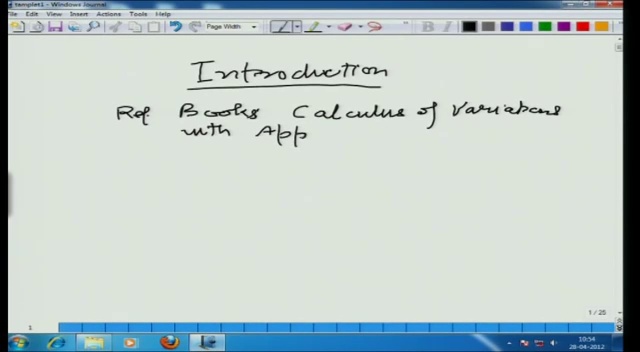 templet1 - Windows Journal
File Edit View Insert Actions Tools Help
Page Width
B I
Introduction
Ref. Books Calculus of Variations
with App
1 / 25
1
10:54
28-04-2012